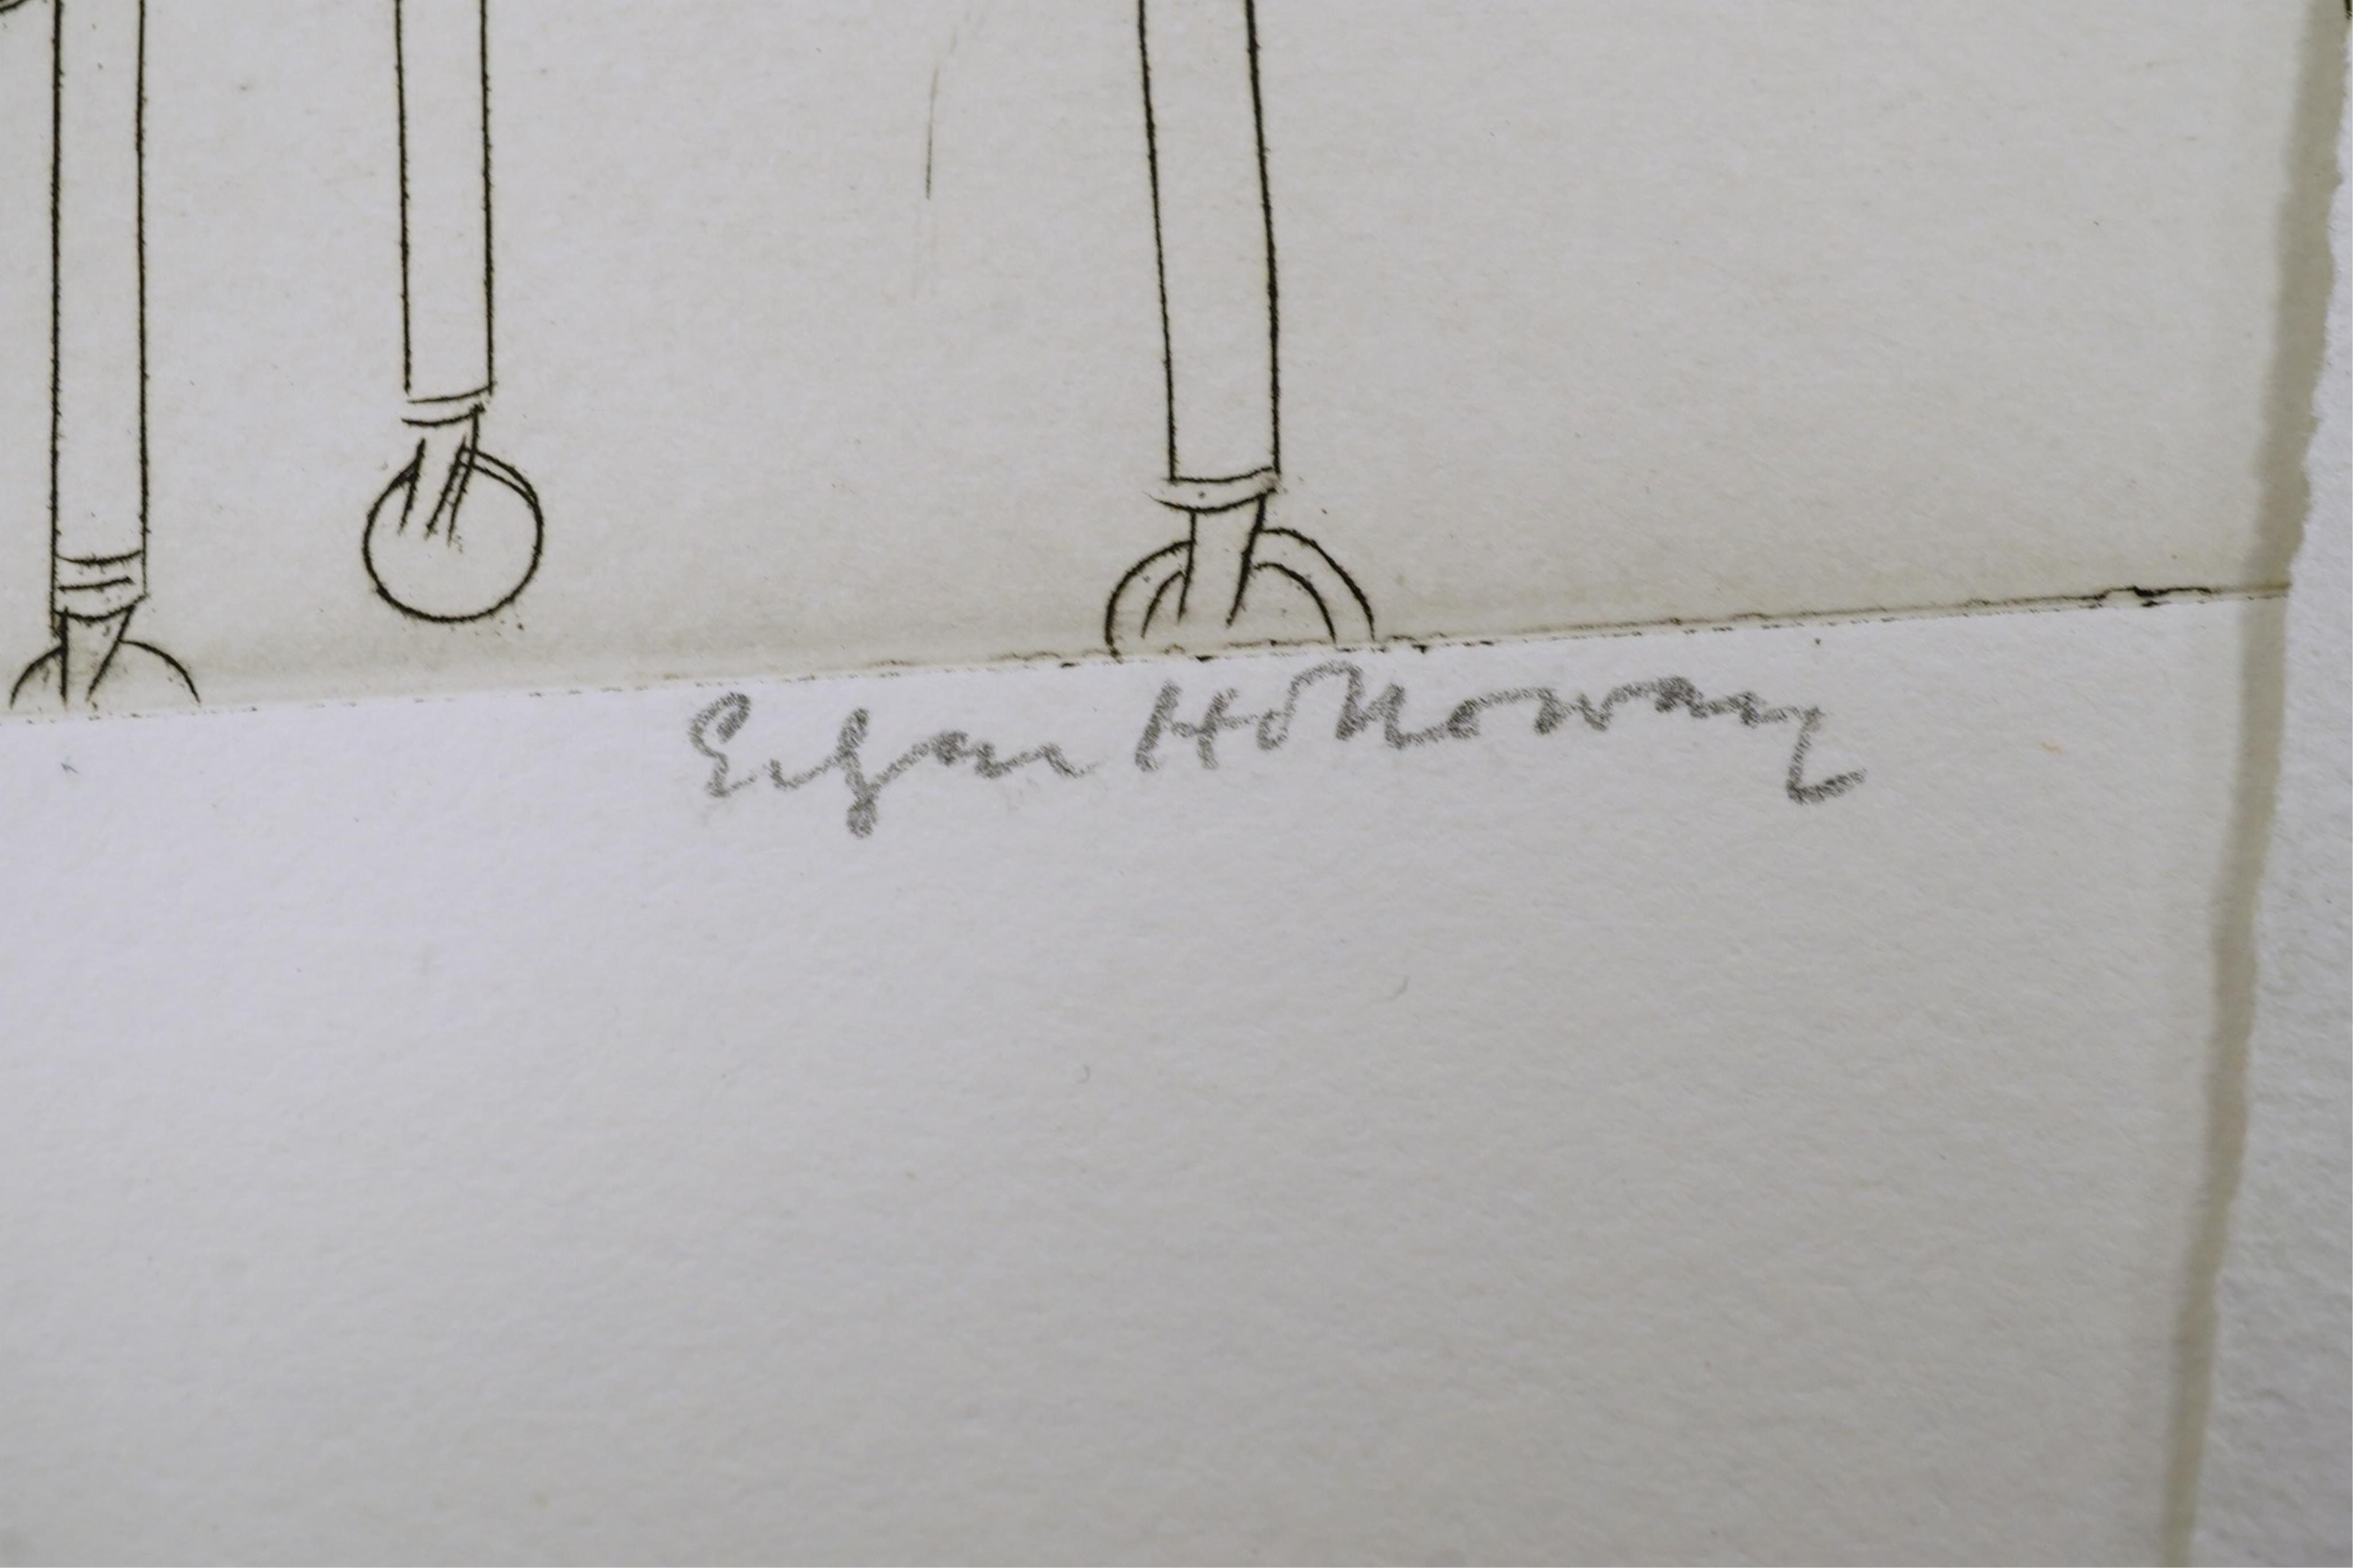 Edgar Holloway